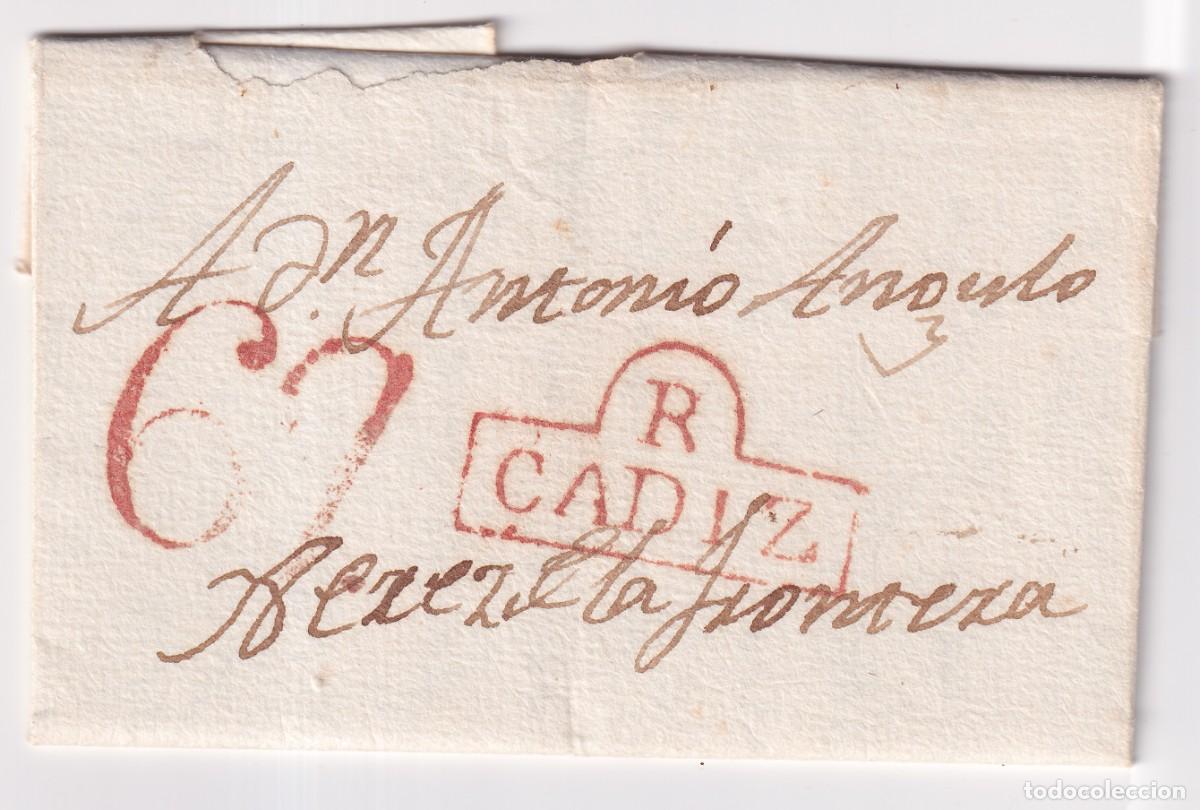 A Dn. Antonio Angulo
67
R
CADIZ
Xerez de la frontera
todocoleccion